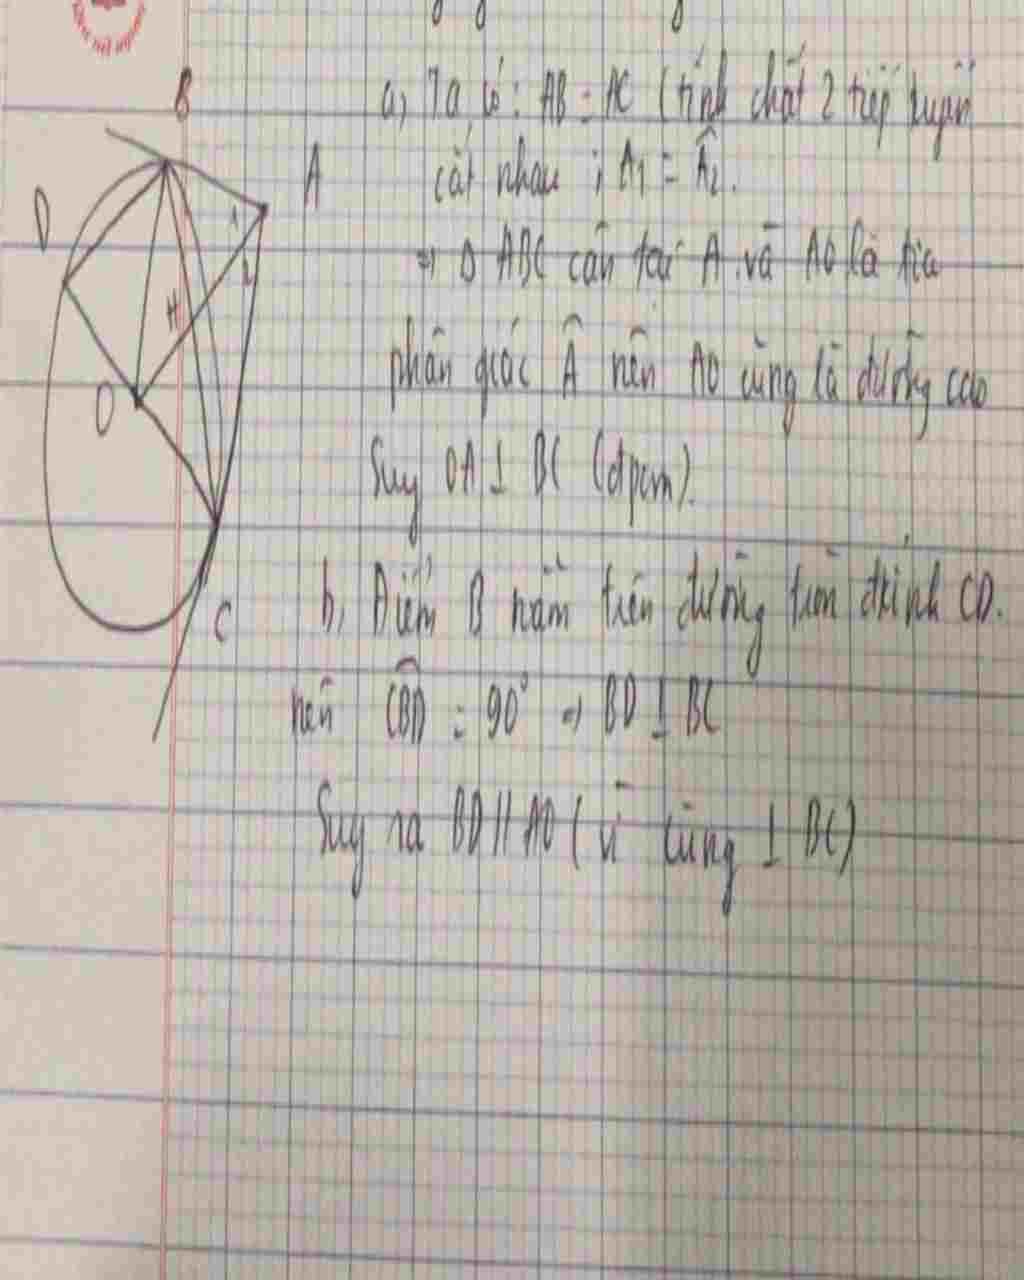 B
D
A
H
O
C
a, Ta có: AB = AC (tính chất 2 tiếp tuyến
cắt nhau ; Â1 = Â2.
=> Δ ABC cân tại A và AO là tia
phân giác Â nên AO cũng là đường cao
Suy OA ⊥ BC (đpcm).
b, Điểm B nằm trên đường tròn đkính CD.
nên CBD = 90° => BD ⊥ BC
Suy ra BD // AO ( vì cùng ⊥ BC)